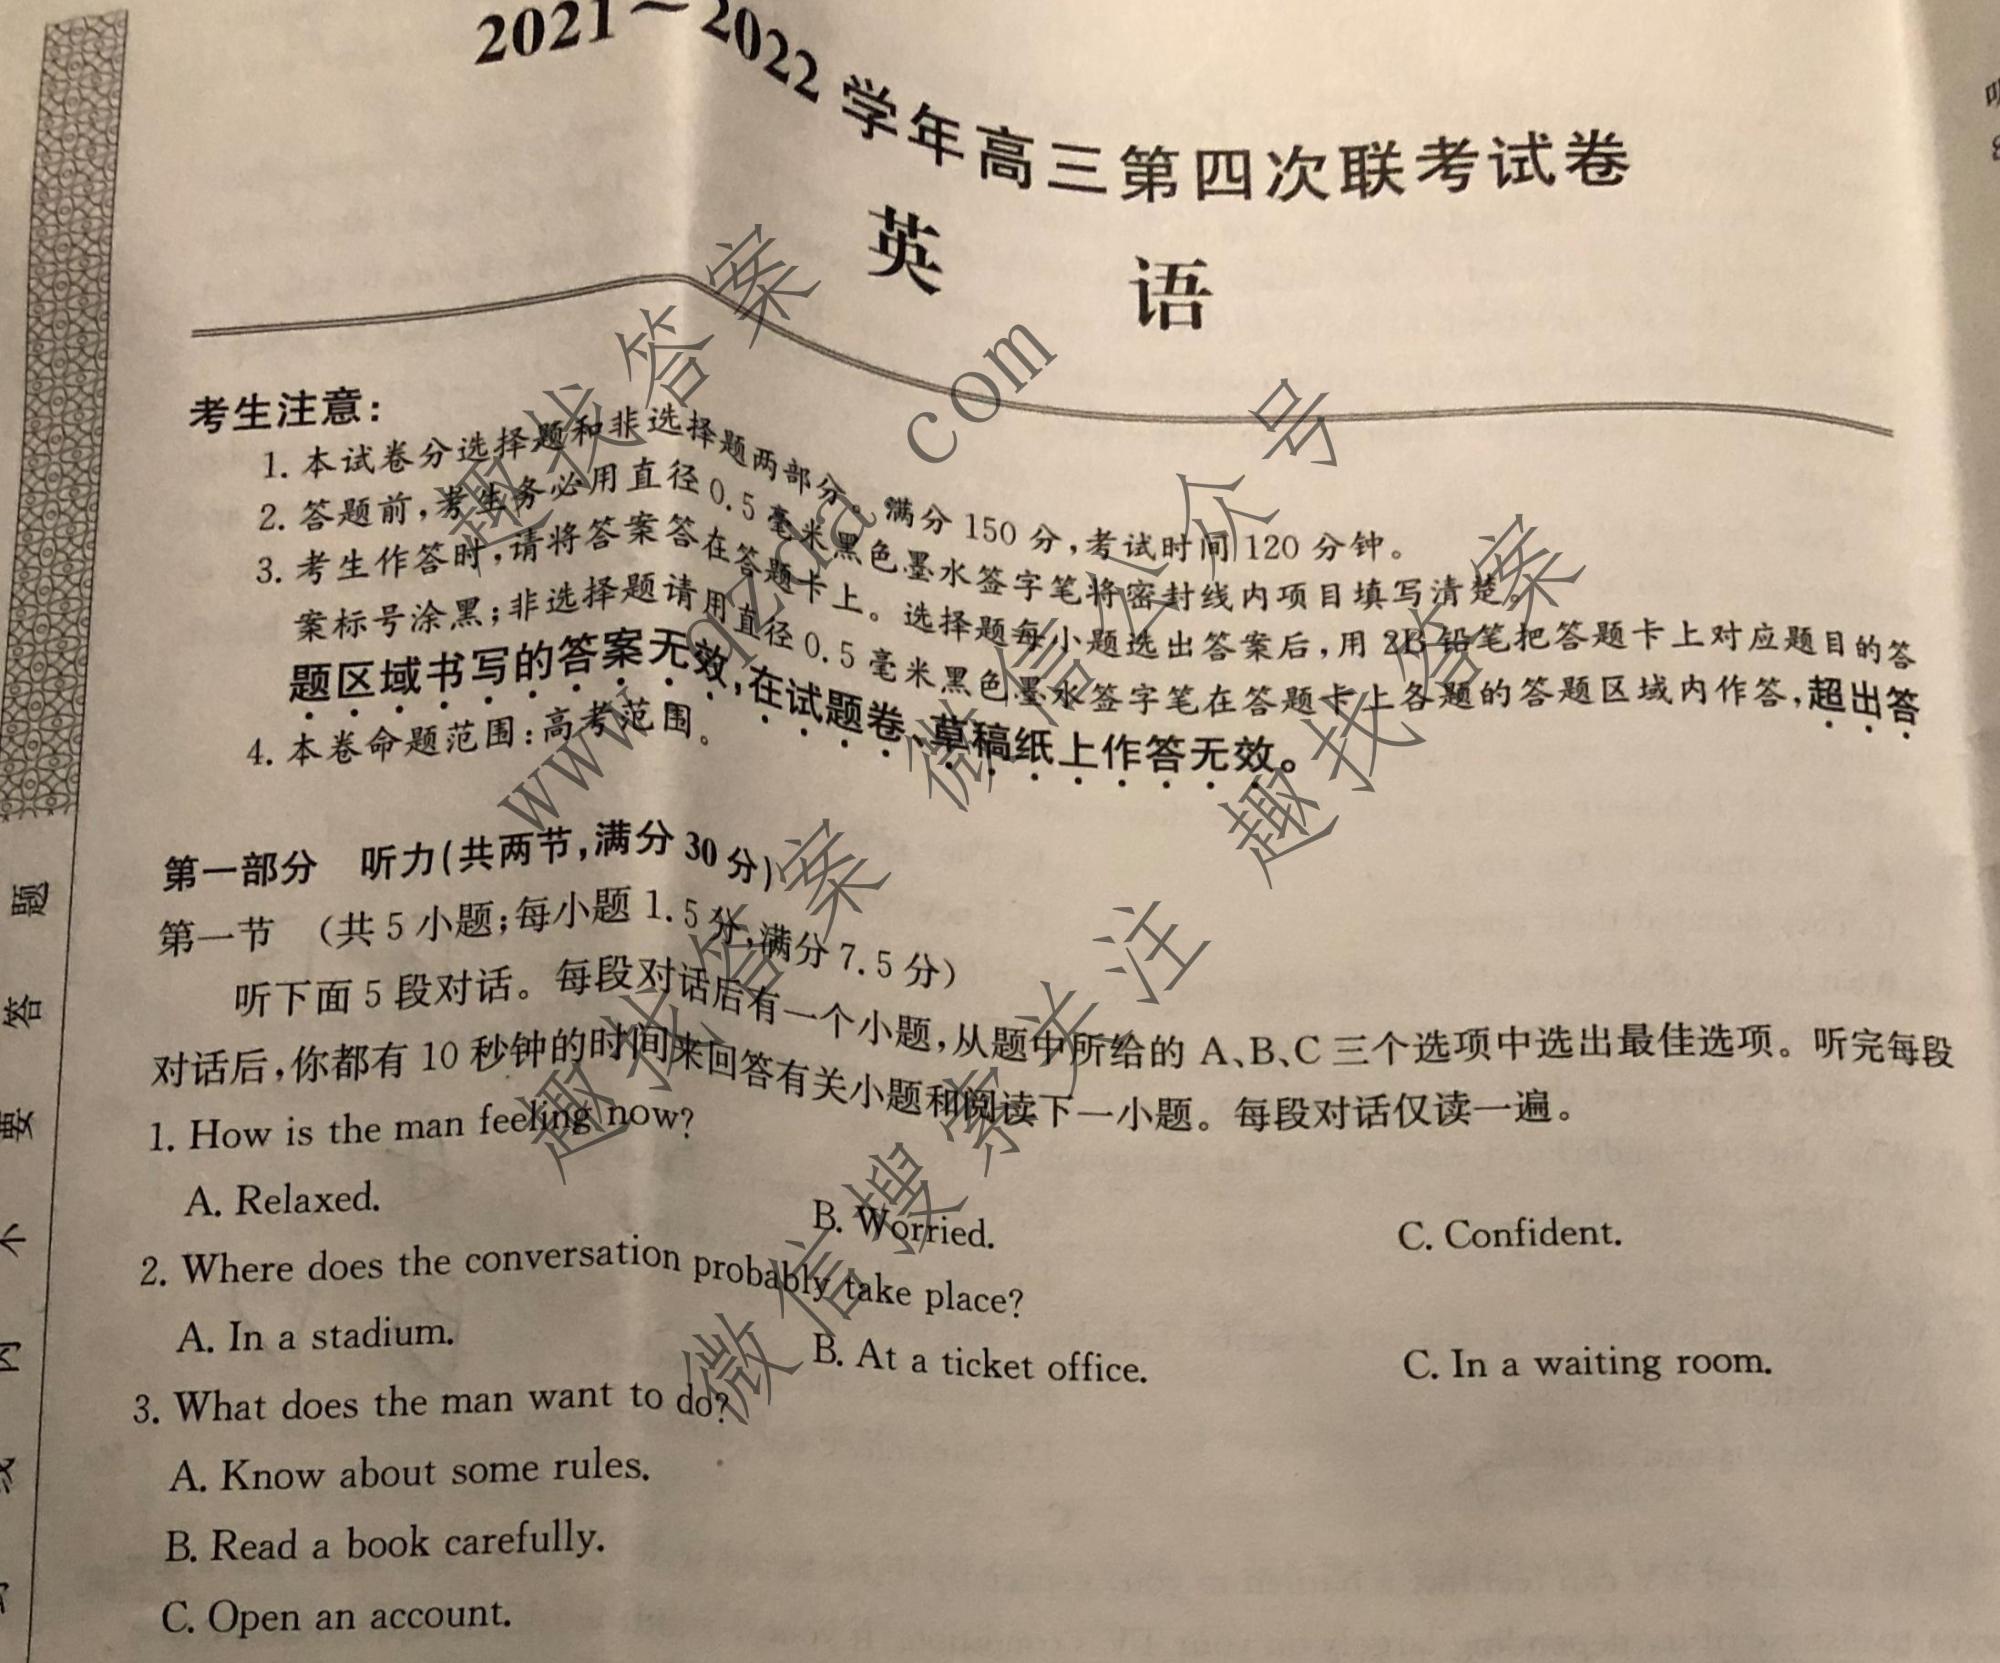 2021～2022学年高三第四次联考试卷
英 语
考生注意:
1. 本试卷分选择题和非选择题两部分。满分150分,考试时间120分钟。
2. 答题前,考生务必用直径0.5毫米黑色墨水签字笔将密封线内项目填写清楚。
3. 考生作答时,请将答案答在答题卡上。选择题每小题选出答案后,用2B铅笔把答题卡上对应题目的答
案标号涂黑;非选择题请用直径0.5毫米黑色墨水签字笔在答题卡上各题的答题区域内作答,超出答
题区域书写的答案无效,在试题卷、草稿纸上作答无效。
4. 本卷命题范围:高考范围。
第一部分 听力(共两节,满分30分)
第一节 (共5小题;每小题1.5分,满分7.5分)
听下面5段对话。每段对话后有一个小题,从题中所给的A、B、C三个选项中选出最佳选项。听完每段
对话后,你都有10秒钟的时间来回答有关小题和阅读下一小题。每段对话仅读一遍。
1. How is the man feeling now?
A. Relaxed. B. Worried. C. Confident.
2. Where does the conversation probably take place?
A. In a stadium. B. At a ticket office. C. In a waiting room.
3. What does the man want to do?
A. Know about some rules.
B. Read a book carefully.
C. Open an account.
题 答 要 不 内
趣找答案
微信公众号
趣找答案
趣找答案
微信搜索关注